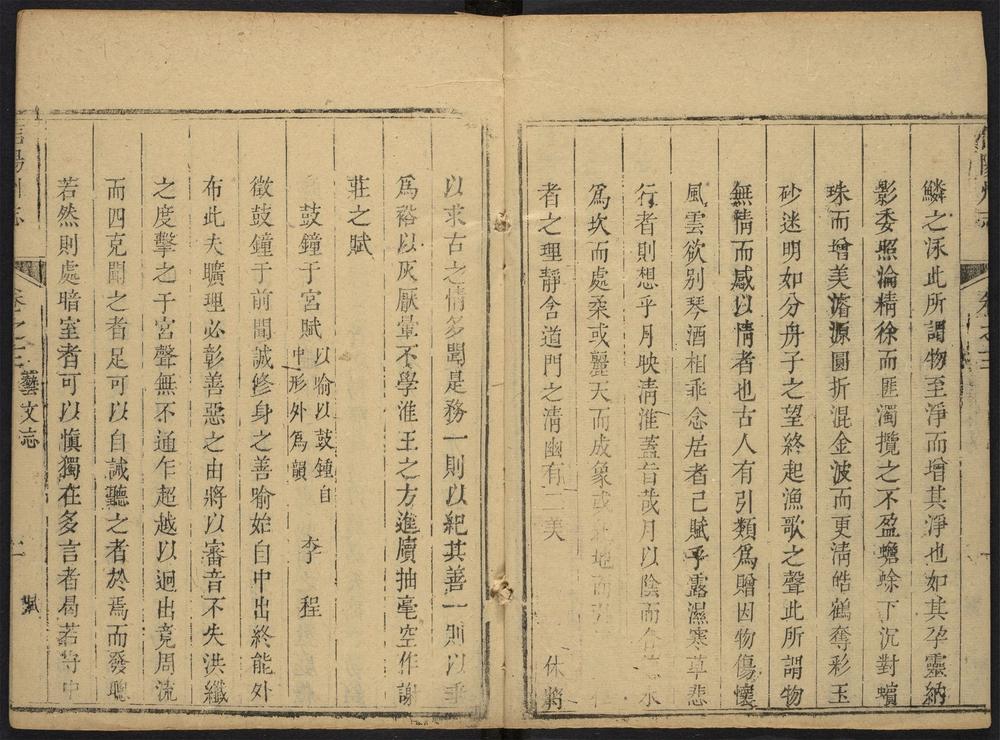 鱗之泳此所謂物至淨而增其淨也如其孕靈納
影委照淪精徐而匪濁攬之不盈蟾蜍下沉對蠙
珠而增美濬源圓折混金波而更淸皓鶴奪彩玉
砂迷明如分舟子之望終起漁歌之聲此所謂物
無情而感以情者也古人有引類爲贈因物傷懷
風雲欲别琴酒相乖念居者己賦乎露濕寒草悲
行者則想乎月映淸淮蓋旨哉月以陰而水
爲坎而處柔或麗天而成象或地而
者之理靜含道門之淸幽有美休將
以求古之情多聞是務一則以紀其善一則以垂
爲裕以灰厭暈不學淮王之方進牘抽毫空作謝
莊之賦
鼓鐘于宮賦以喻以鼓鍾自中形外爲韻李程
徵鼓鐘于前聞誠修身之善喻始自中出終能外
布此夫曠理必彰善惡之由將以審音不失洪纖
之度擊之于宮聲無不通乍超越以迥出竟周流
而四克聞之者足可以自誡聽之者於焉而發聰
若然則處暗室者可以愼獨在多言者曷若守中
卷之十
藝文志
賦